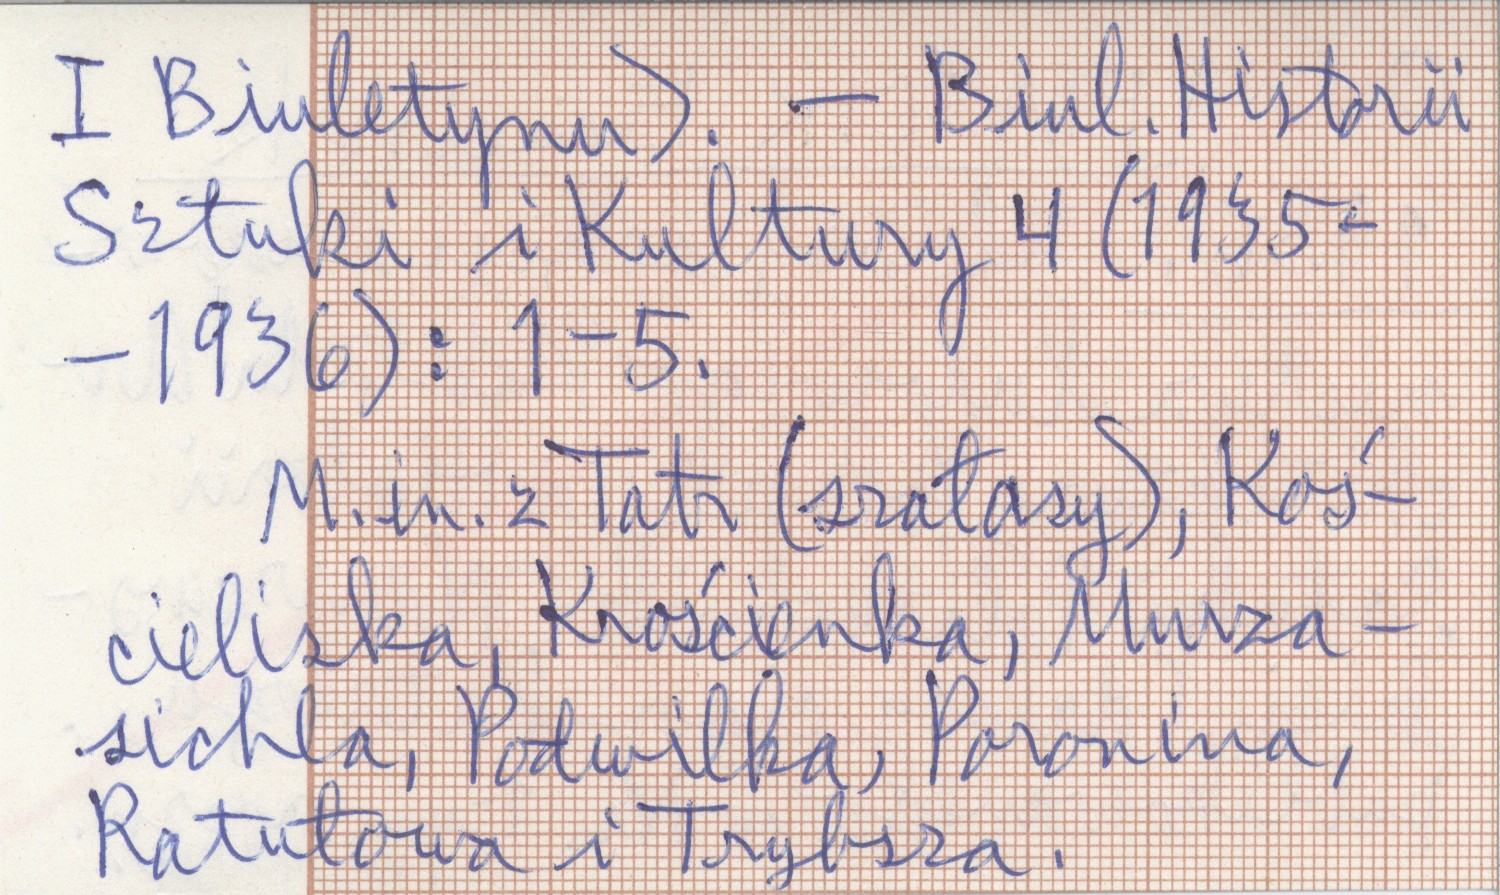 I Biuletynu). — Biul. Historii
Sztuki i Kultury 4 (1935-
-1936): 1-5.
M. in. z Tatr (szałasy), Koś-
cieliska, Krościenka, Murza-
sichla, Podwilka, Poronina,
Ratułowa i Trybsza.